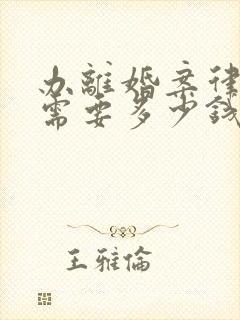 办離婚案律
需要多少錢
王雅倫